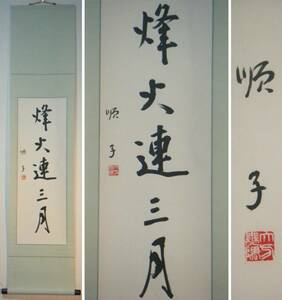 烽火連三月
順子
烽火連三月
順子
順子